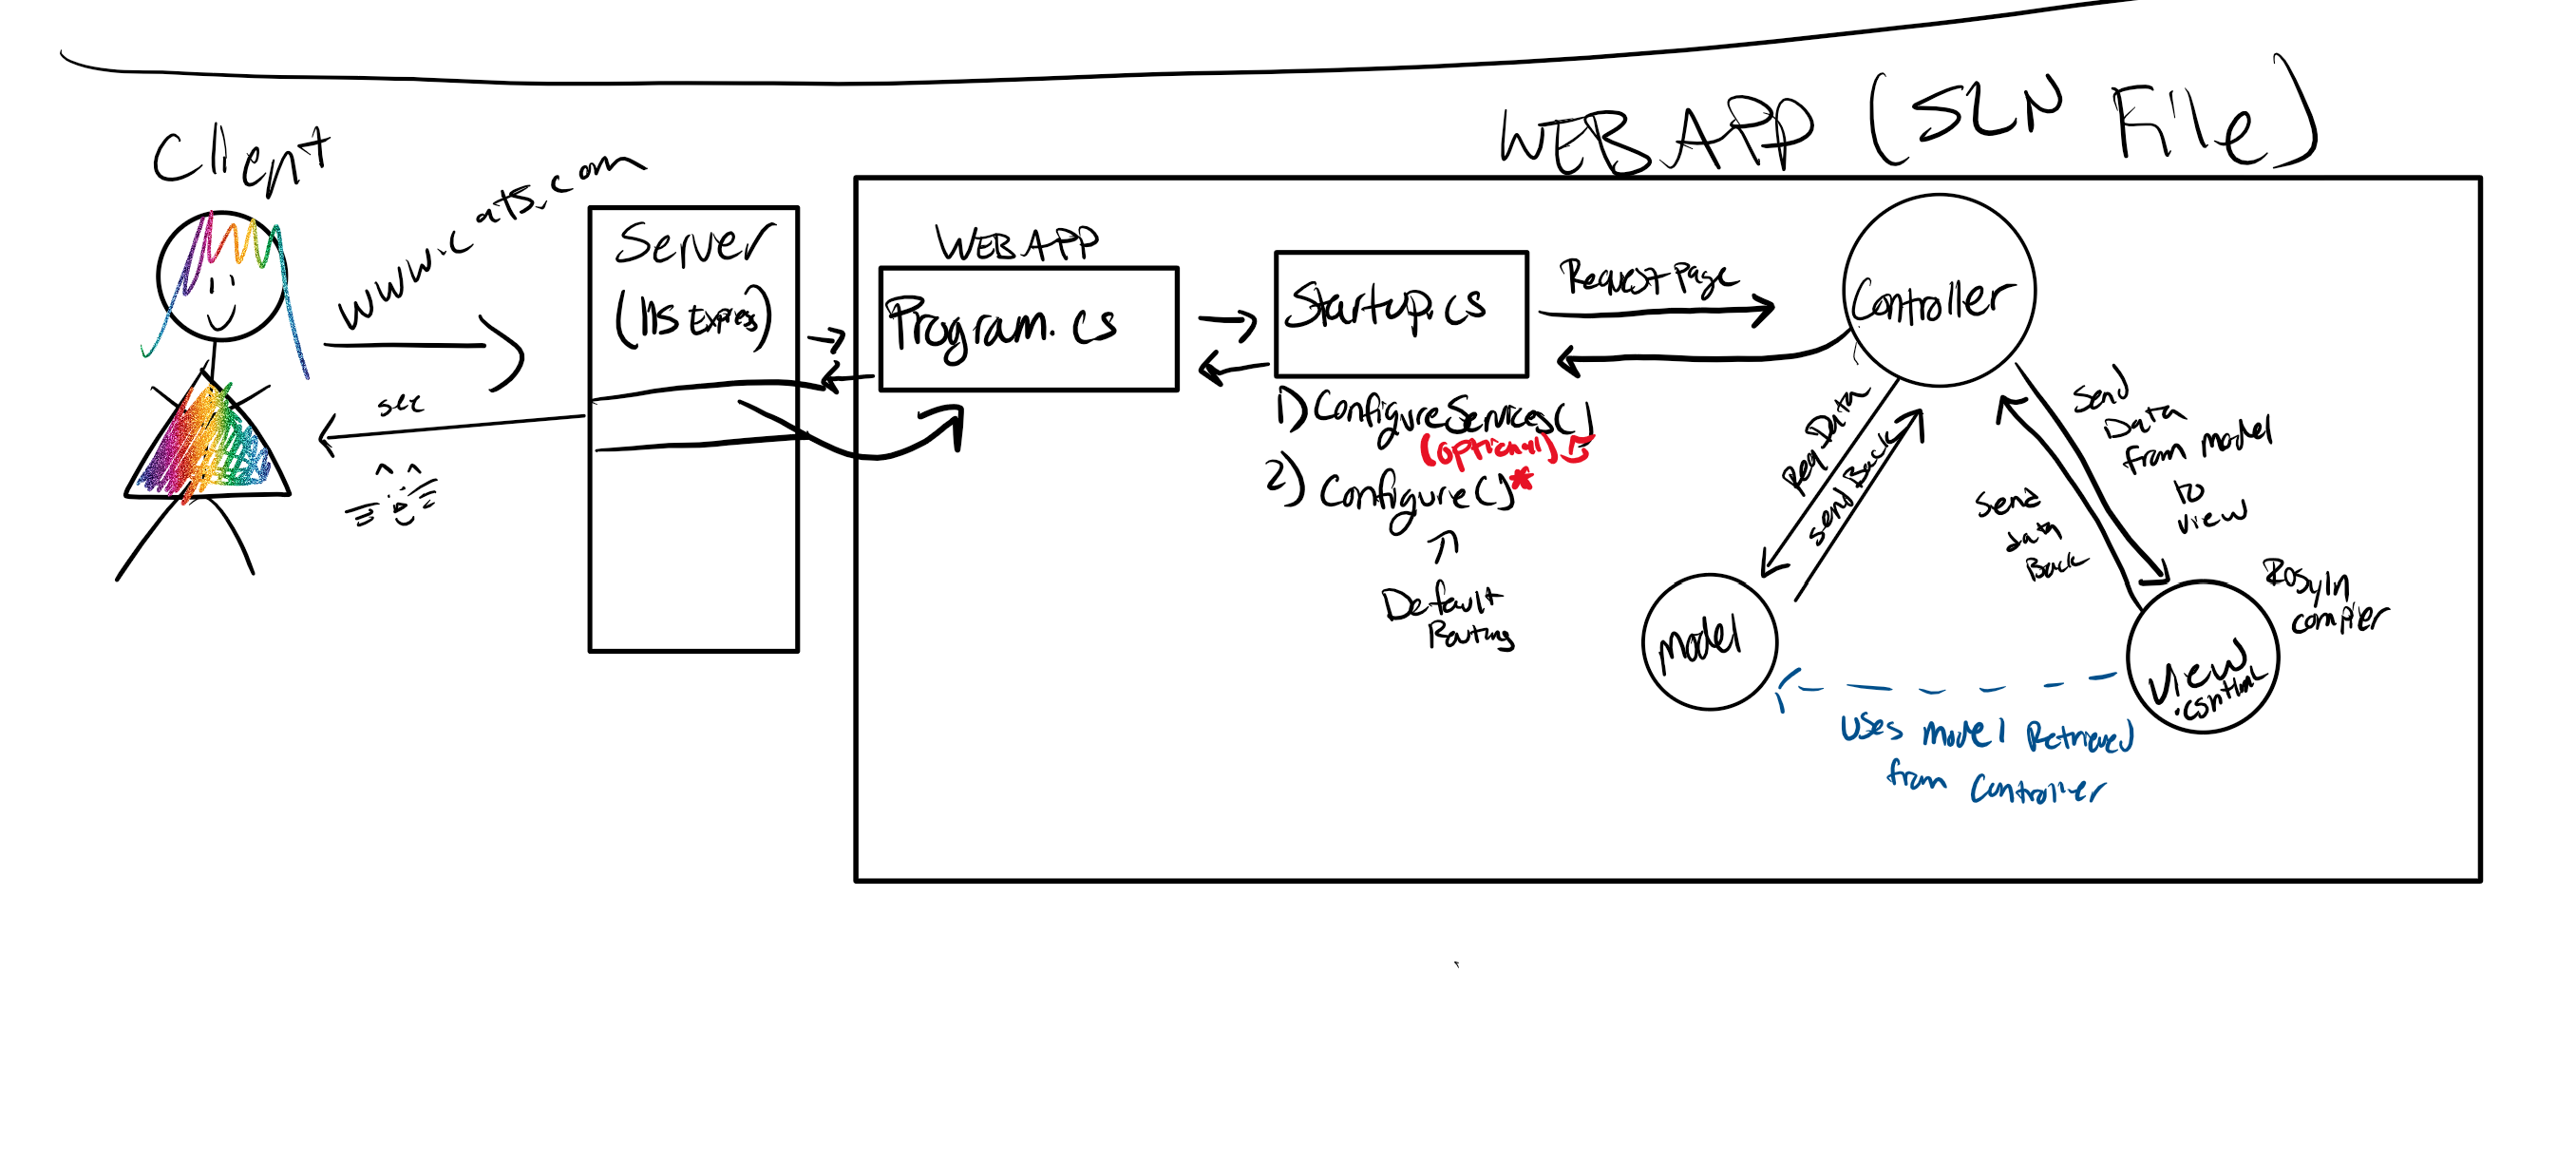 WEB APP (SLN File)
Client
www.cats.com
see
Server
(IIS Express)
WEB APP
Program.cs
Startup.cs
1) ConfigureServices()
(optional)
2) Configure()*
Default
Routing
Request Page
Controller
Req Data
Send Back
Send
Data
from model
to
view
Send
data
Back
model
View
.cshtml
Rosyln
compiler
Uses Model Retrieved
from Controller